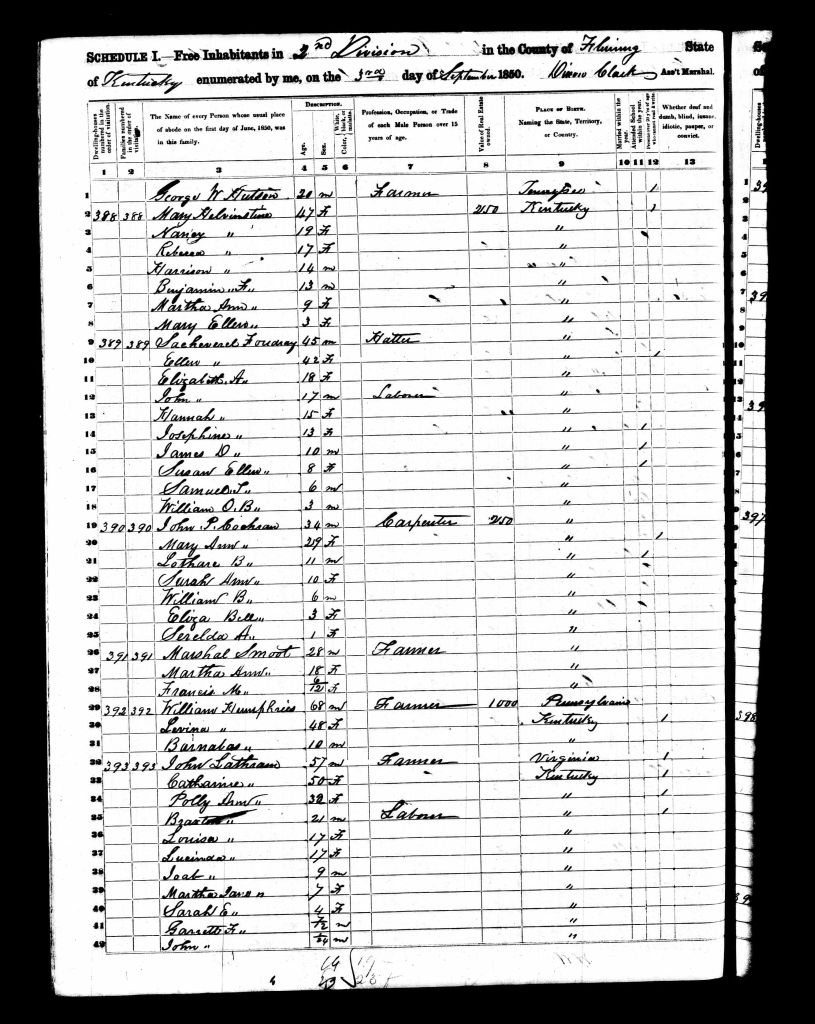 SCHEDULE I.—Free Inhabitants in 2nd Division in the County of Fleming State
of Kentucky enumerated by me, on the 3rd day of September 1850. Clark Ass't Marshal.
Dwelling-houses numbered in the order of visitation.
Families numbered in the order of visitation.
The Name of every Person whose usual place of abode on the first day of June, 1850, was in this family.
DESCRIPTION.
Age.
Sex.
Color, White, black, or mulatto.
Profession, Occupation, or Trade of each Male Person over 15 years of age.
Value of Real Estate owned.
PLACE OF BIRTH. Naming the State, Territory, or Country.
Married within the year.
Attended School within the year.
Persons over 20 y'rs of age who cannot read & write.
Whether deaf and dumb, blind, insane, idiotic, pauper, or convict.
1 2 3 4 5 6 7 8 9 10 11 12 13
1 George W Hutson 20 m Farmer Tennessee 1
2 388 388 Mary Helvinstine 47 F 250 Kentucky 1
3 Nancy " 19 F "
4 Rebecca " 17 F "
5 Harrison " 14 m "
6 Benjamin F. " 13 m "
7 Martha Ann " 9 F "
8 Mary Ellen " 3 F "
9 389 389 Sacheverel Foudray 45 m Hatter "
10 Ellen " 42 F " 1
11 Elizabeth A " 18 F "
12 John " 17 m Laborer "
13 Hannah " 15 F "
14 Josephine " 13 F " 1
15 James D " 10 m " 1
16 Susan Ellen " 8 F " 1
17 Samuel T " 6 m "
18 William O. B " 3 m "
19 390 390 John P. Cochran 34 m Carpenter 250 "
20 Mary Ann " 29 F " 1
21 Lothare B " 11 m " 1
22 Sarah Ann " 10 F " 1
23 William B " 6 m "
24 Eliza Bell " 3 F "
25 Serelda A " 1 F "
26 391 391 Marshal Smoot 28 m Farmer "
27 Martha Ann " 18 F "
28 Francis M " 6/12 F "
29 392 392 William Humphries 68 m Farmer 1000 Pennsylvania
30 Levina " 48 F Kentucky 1
31 Barnabas " 10 m "
32 393 393 John Lathram 57 m Farmer Virginia 1
33 Catharine " 50 F Kentucky 1
34 Polly Ann " 32 F " 1
35 Braxton " 21 m Laborer " 1
36 Louisa " 17 F "
37 Lucinda " 17 F "
38 Joab " 9 m "
39 Martha Jane " 7 F "
40 Sarah E " 4 F "
41 Garrett F " m "
42 John " m "
19
23